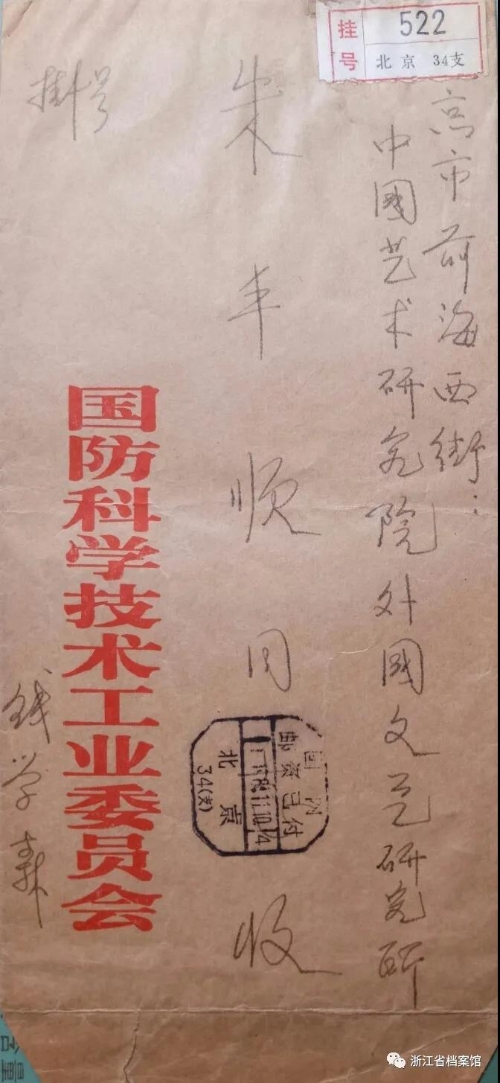 挂号
522
北京 34支
京市前海西街：
中國艺术研究院外國文艺研究所
朱丰顺同 收
挂号
国内
邮资已付
北京
34(支)
国防科学技术工业委员会
钱学森
浙江省档案馆